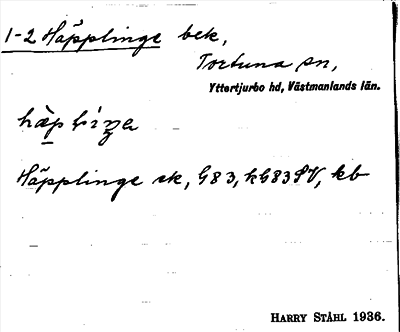 1-2 Häpplinge bek,
Tortuna sn,
Yttertjurbo hd, Västmanlands län.
Häpplinge sk, G83, kG83SV, kb
HARRY STÅHL 1936.